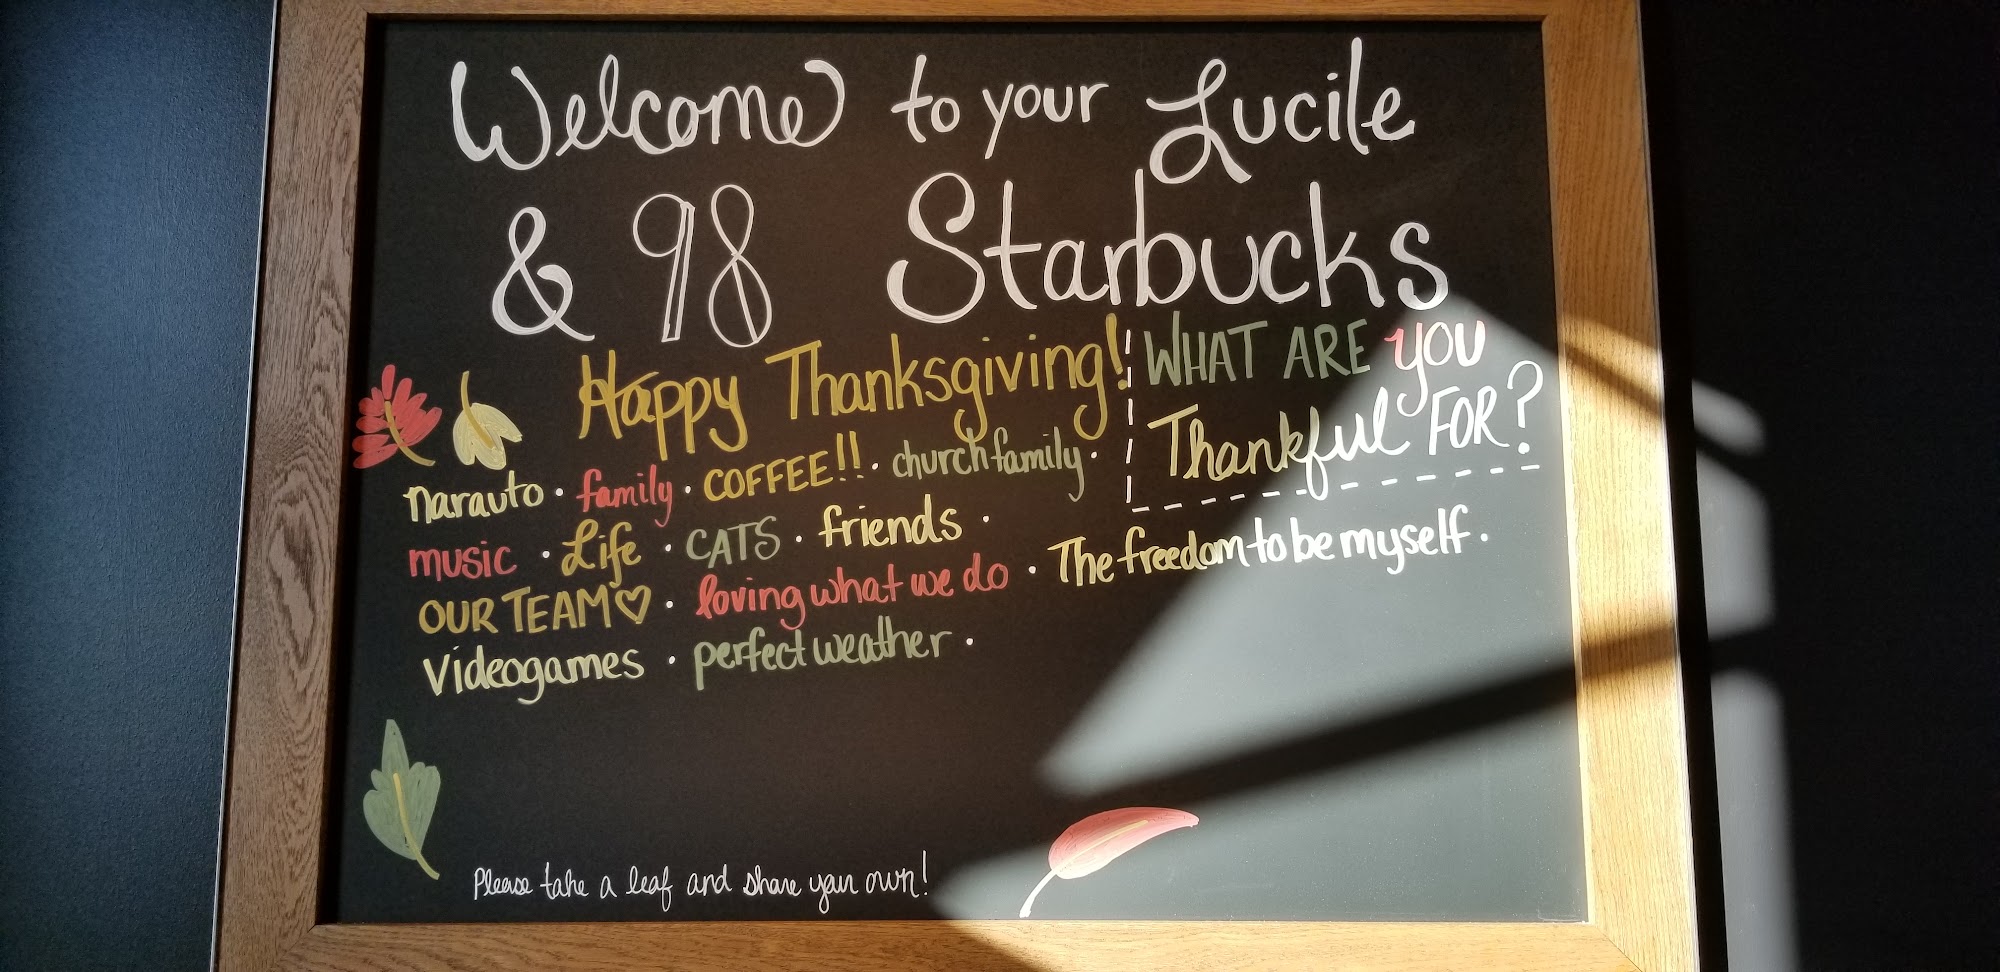 Welcome to your Lucile
& 98 Starbucks
Happy Thanksgiving!
WHAT ARE you
Thankful FOR?
narauto · family · COFFEE!! · church family ·
music · Life · CATS · friends ·
OUR TEAM♡ · loving what we do · The freedom to be myself ·
Videogames · perfect weather ·
Please take a leaf and share your own!